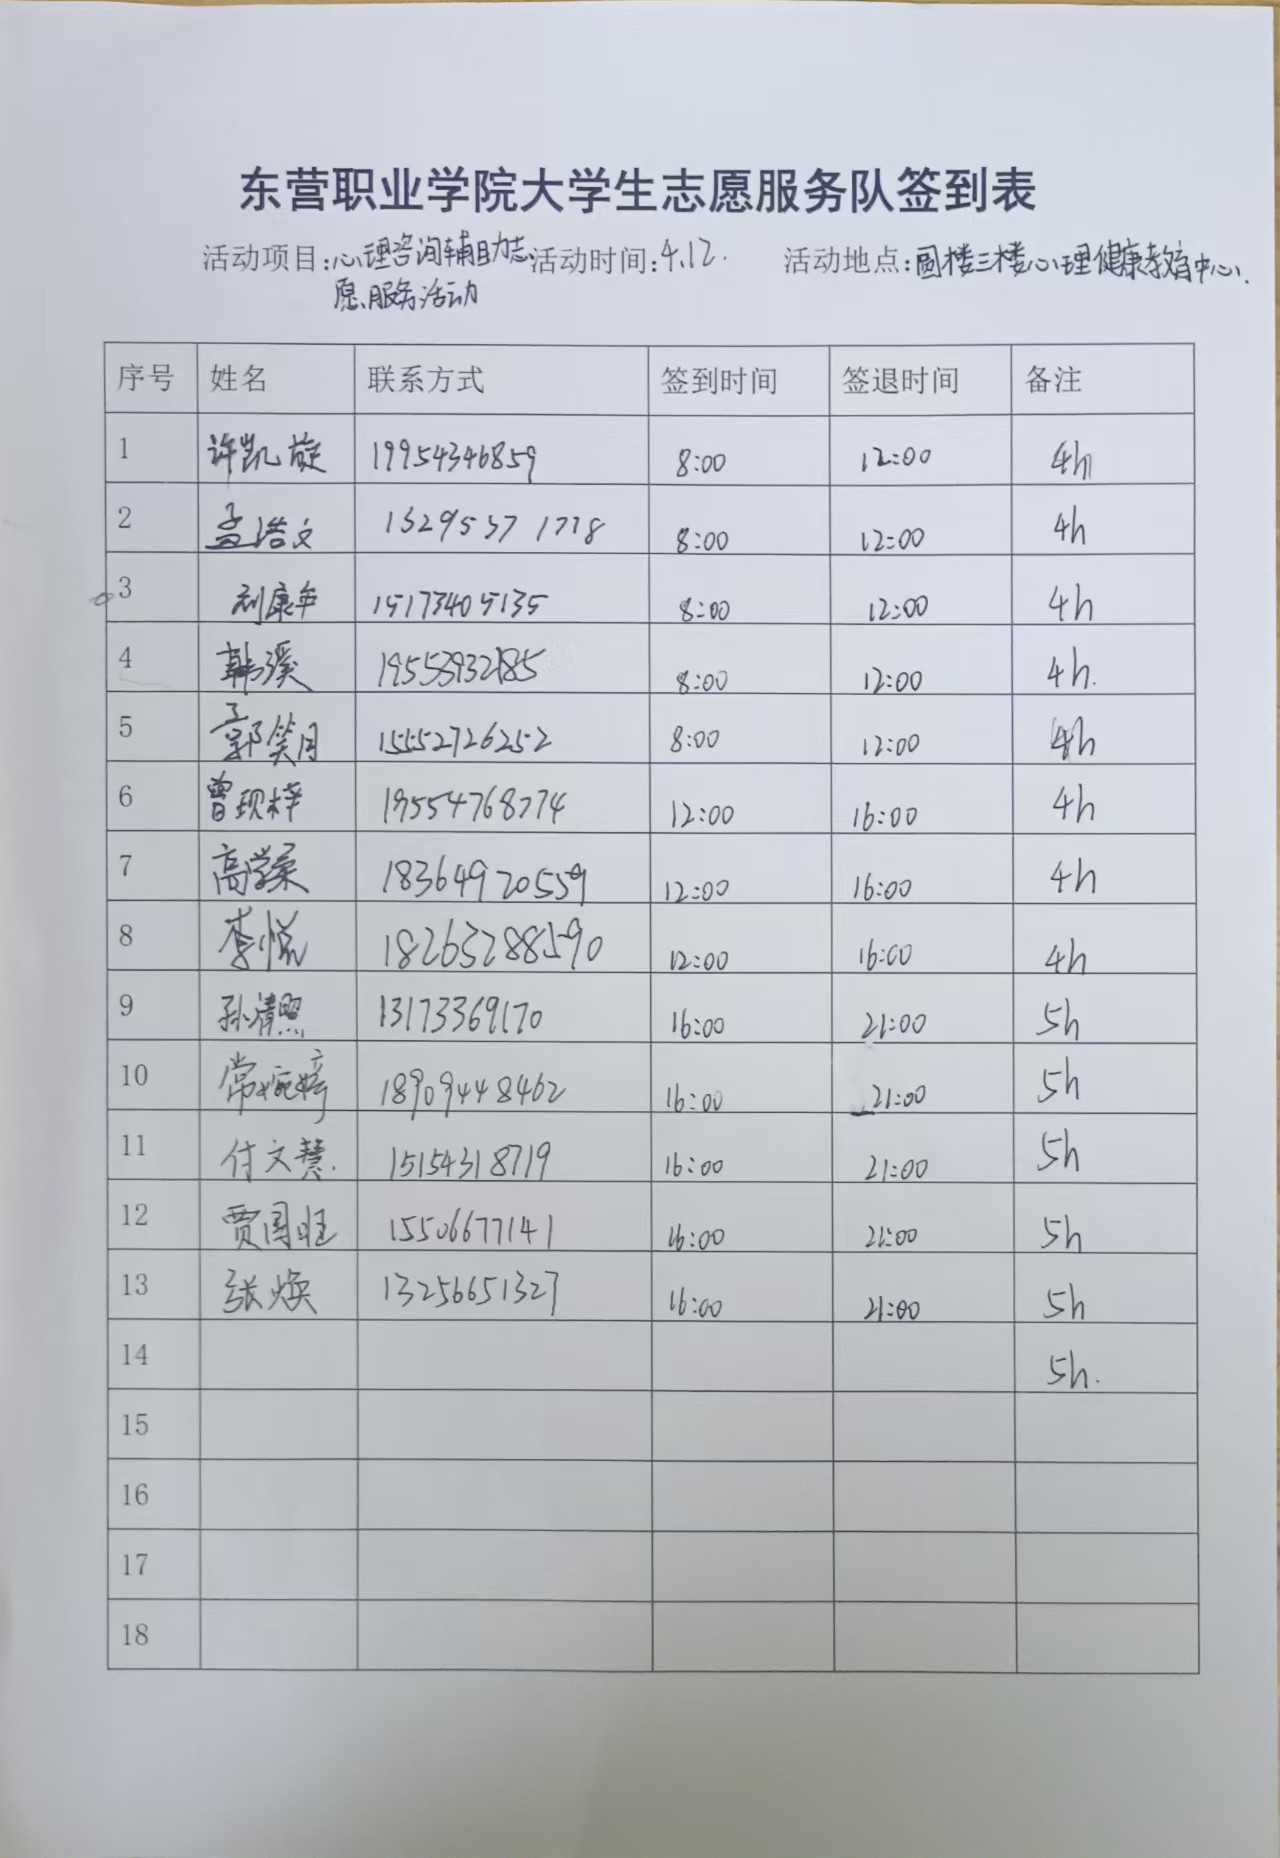 东营职业学院大学生志愿服务队签到表
活动项目:心理咨询辅助志愿服务活动 活动时间:4.12. 活动地点:圆楼三楼心理健康教育中心.
序号 姓名 联系方式 签到时间 签退时间 备注
1 许凯旋 19954346859 8:00 12:00 4h
2 孟浩文 13295371778 8:00 12:00 4h
3 刘康年 15173405135 8:00 12:00 4h
4 韩溪 19553932185 8:00 12:00 4h.
5 郭笑月 15552726252 8:00 12:00 4h
6 曾现梓 19554768774 12:00 16:00 4h
7 高学柔 18364920559 12:00 16:00 4h
8 李悦 18263288590 12:00 16:00 4h
9 孙清照 13173369170 16:00 21:00 5h
10 常婉婷 18909448462 16:00 21:00 5h
11 付文慧. 15154318719 16:00 21:00 5h
12 贾国旺 15506677141 16:00 21:00 5h
13 张焕 13256651327 16:00 21:00 5h
14 5h.
15
16
17
18